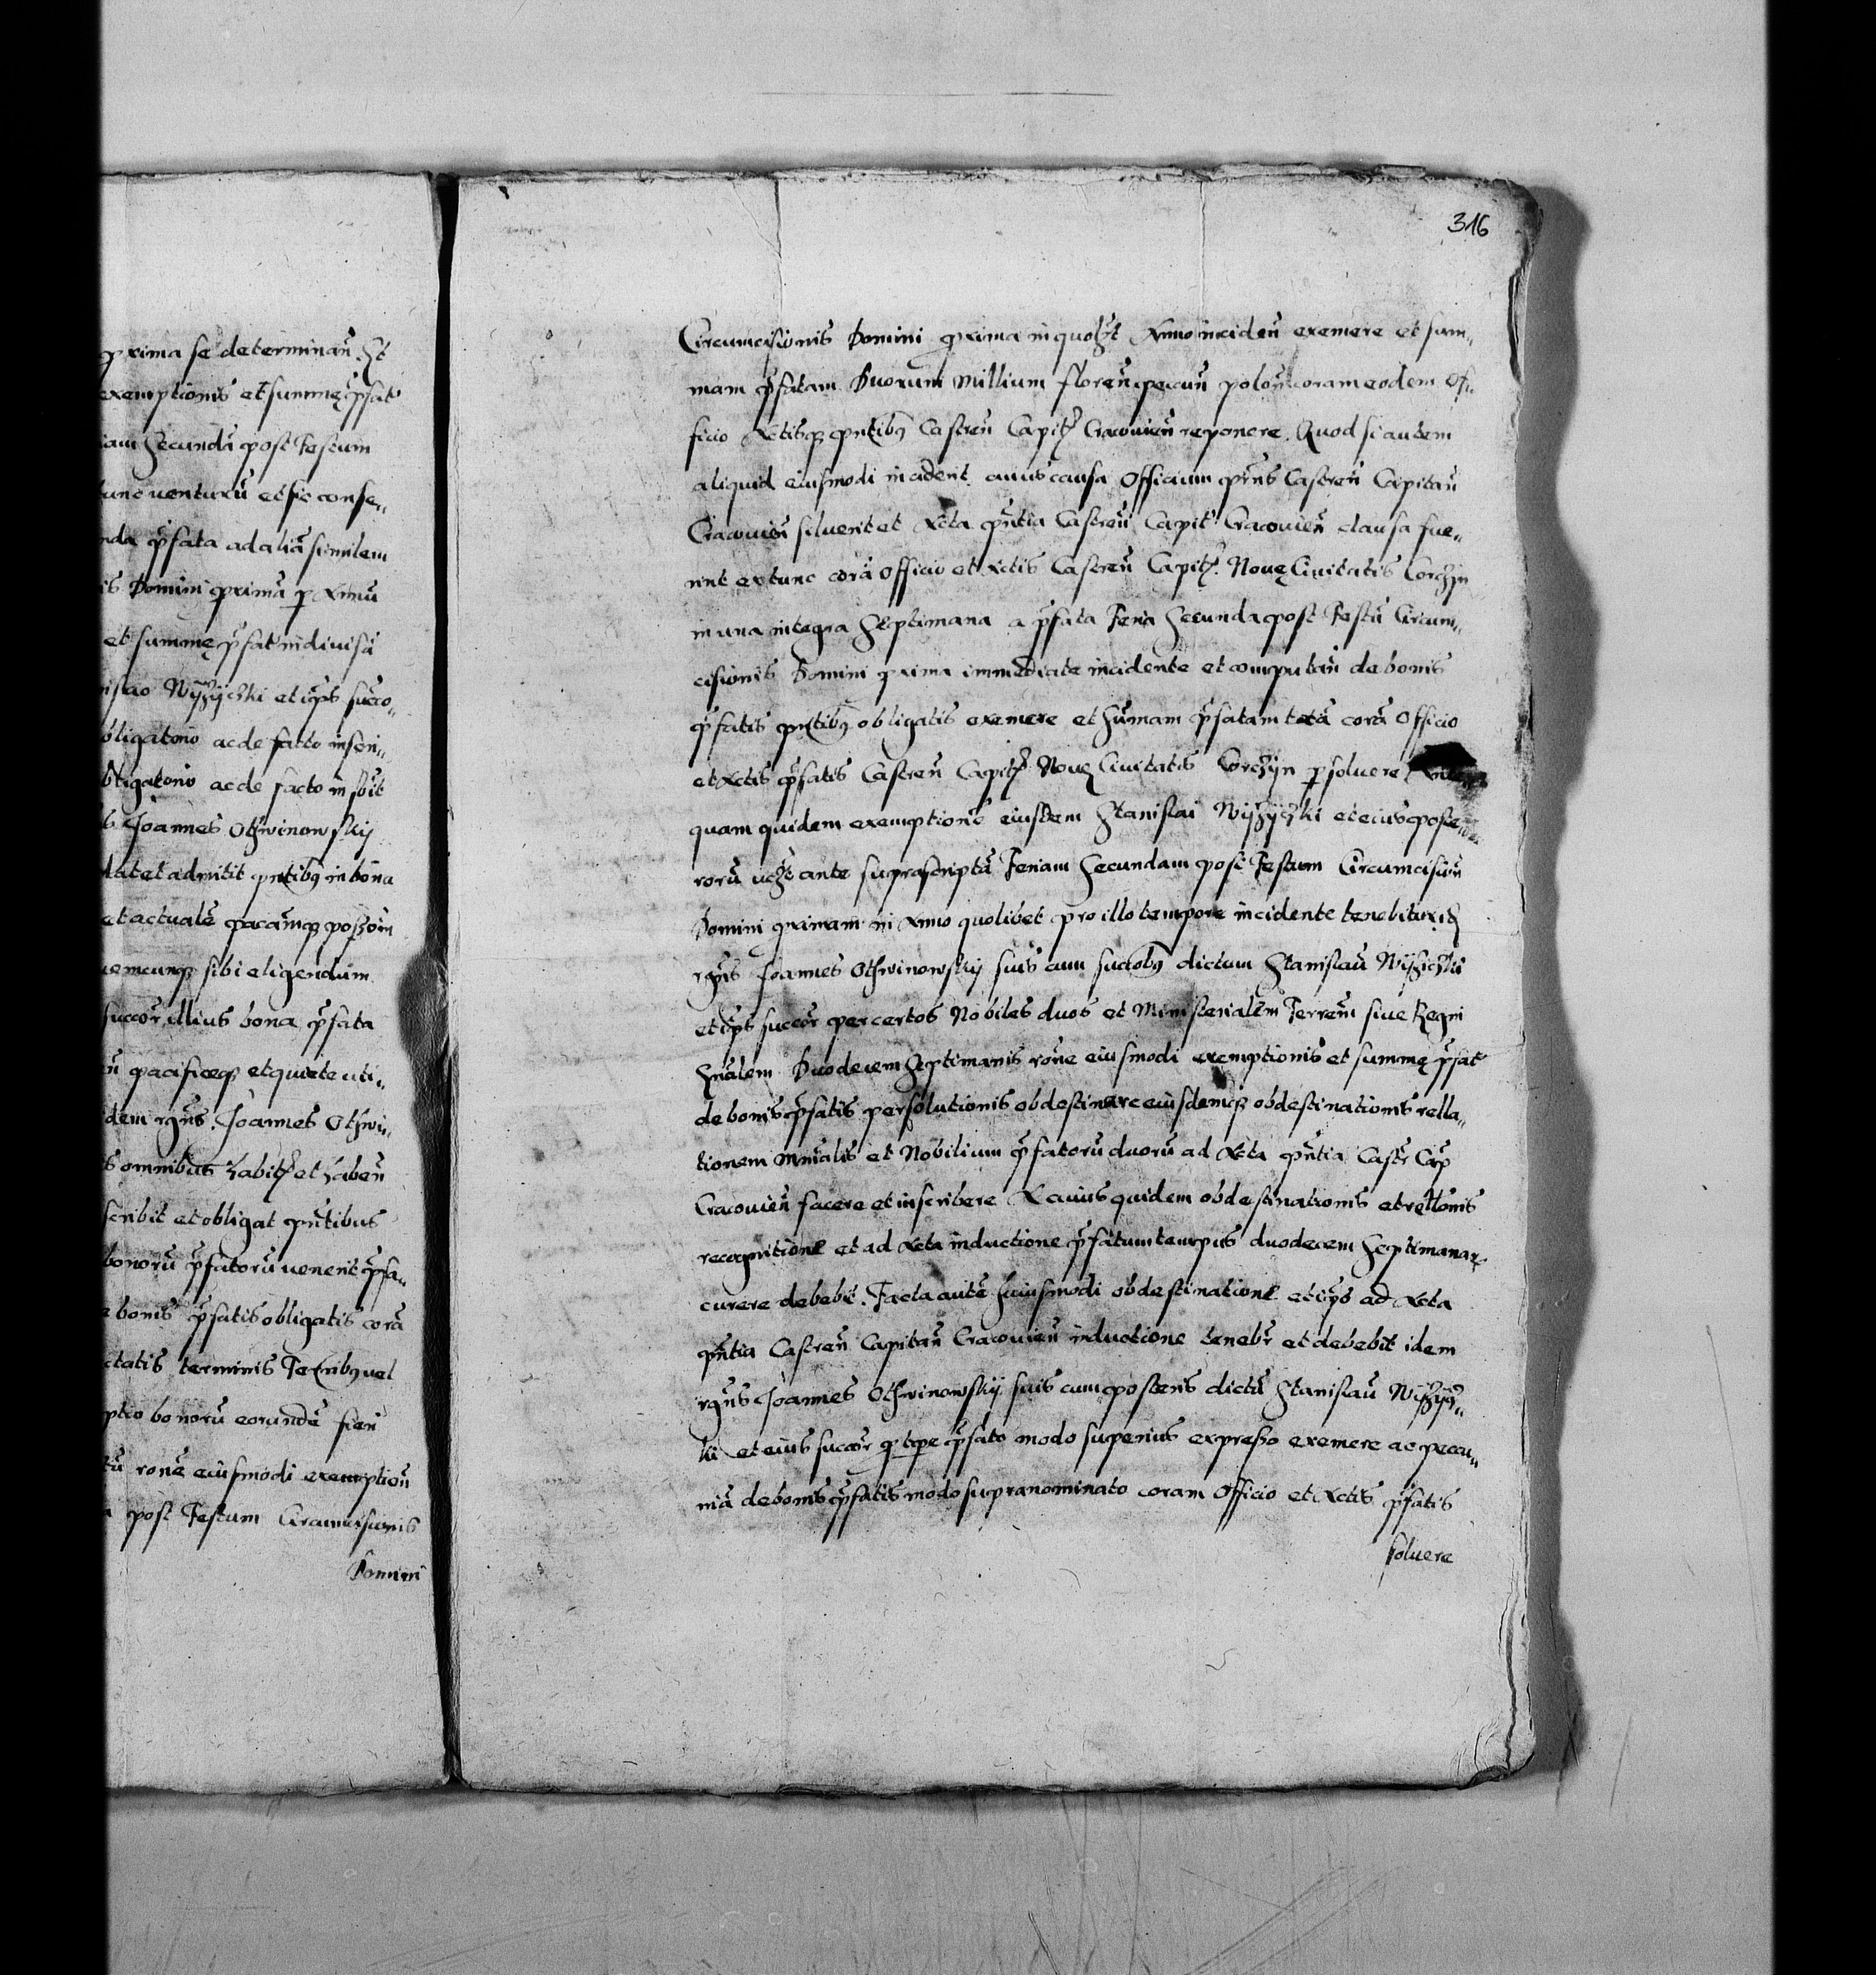 pxima se determinan̄. Et
exemptionis et summę p̄fat
iam Secundā post Festum
tunc venturū et sic conse„
nda p̄fata ad aliā similem
is Domini pximā p Annū
et summę p̄fat indiuisā
islao Wyżyczki et ip̄s succo„
obligatorio ac de facto inscri„
bligatorio ac de facto inscbit
Joannes Othwinowskÿ
dat et admitit pn̄tibꝫ in bona
et actualē pacamqꝫ poss̄oīn
uemcunqꝫ sibi eligendum
succor̄ illius bona p̄fata
pacificeqꝫ et quiete uti„
dem rgn̄s. Joannes Othwi„
s omnibus habit̄ et haben̄
scribit et obligat pn̄tibus
bonorū p̄fatorū uenerit p̄fa„
bonis p̄fatis obligatis corā
ctatis terminis uel
ptio bonorū eorundē fieri
rōne eiusmodi exemption̄
post Festum Circumcisionis
Domini
316
Circumcisionis Domini pxima in quolȝt Anno inciden̄ exemere et sum„
mam p̄fatam Duorum Millium floren̄ pecun̄ polon̄ coram eodem Of„
ficio Actisqꝫ pn̄tibꝫ Castren̄ Capit̄ Cracouien̄ reponere. Quod si autem
aliquid eiusmodi inciderit cuius causa Officium pn̄s Castren̄ Capitan̄
Cracouien̄ siluerit et Acta pn̄tia Castren̄ Capit̄ Cracouien̄ clausa fue„
rint extunc corā Officio et Actis Castren̄ Capit̄. Nouę Ciuitatis Corczyn
in una integra Septimana a p̄fata Feria Secunda post Festū Circum„
cisionis Domini pxima immediate incidente et computan̄ de bonis
p̄fatis pn̄tibꝫ obligatis exemere et Sum̄am p̄fatam totā corā Officio
et Actis p̄fatis Castren̄ Capit̄ Nouę Ciuitatis Corczyn psoluere Ante
quam quidem exemptionē eiusdem Stanislai Wyżyczki et eius poste„
rorū uclȝt ante suprascriptā Feriam Secundam post Festum Circumcision̄
Domini pximam in Anno quolibet pro illo tempore incidente tenebitur id
rgn̄s Joannes Othwinowskÿ suis cum succobꝫ dictum Stanislaū Wyżyczki
et ip̄s succor̄ per certos Nobiles duos et Ministerialem Terren̄ siue Regni
Gn̄alem Duodecem Septimanis rōne eiusmodi exemptionis et summę p̄fat
de bonis p̄fatis persolutionis obdestinare eiusdemqꝫ obdestinationis rella„
tionem Mnīalis et Nobilium p̄fatorū duorū ad Acta pn̄tia Castr̄ Cap̄
Cracouien̄ facere et inscribere A cuius quidem obdestinationis et rellōnis
recognitione et ad Acta inductione p̄fatum tempus duodecem Septimanar̄
currere debebit. Facta autē huiusmodi obdestinatione et ip̄s ad Acta
pn̄tia Castren̄ Capitan̄ Cracouien̄ inductione tenebr̄ et debebit idem
rgn̄s Joannes Othwinowskÿ suis cum posteris dictū Stanislaū Wyżycz„
ki et eius succor̄ p tpe p̄fato modo superius expresso exemere ac pecu„
niā de bonis p̄fatis modo supranominato coram Officio et Actis p̄fatis
soluere